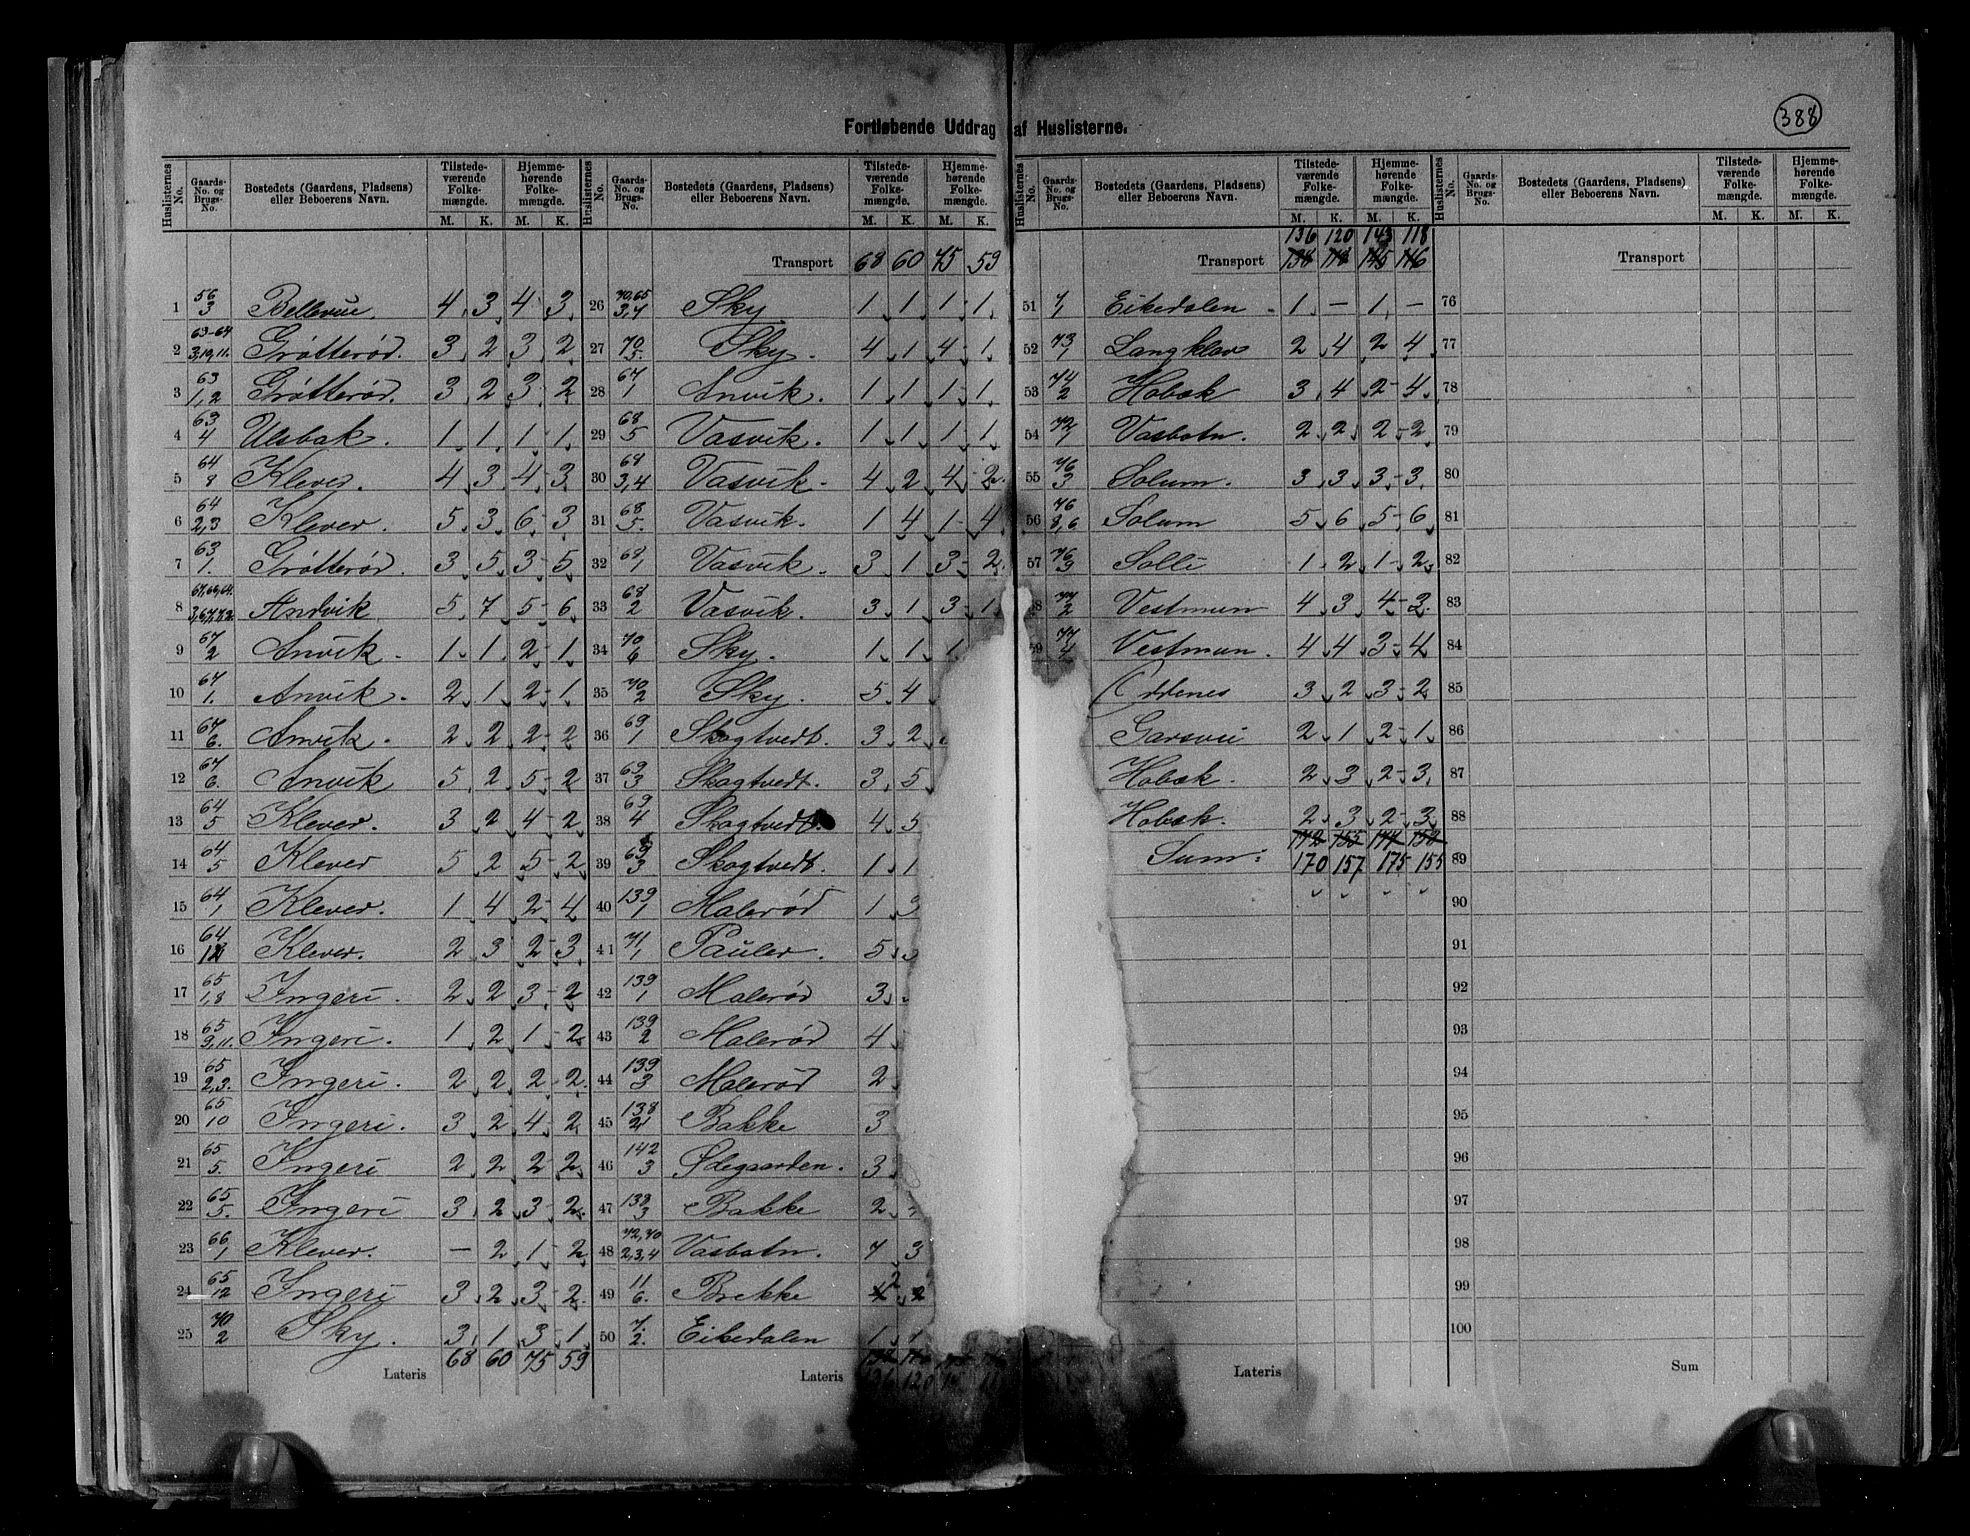 388
Fortløbende Uddrag af Huslisterne.
Huslisternes No. Gaards-No. og Brugs-No. Bostedets (Gaardens, Pladsens) eller Beboerens Navn. Tilstedeværende Folkemængde. M. K. Hjemmehørende Folkemængde. M. K.
1 56/3 Bellevue. 4 3 4 3
2 63-64/3,10,11. Grøtterød. 3 2 3 2
3 63/1,2 Grøtterød. 3 2 3 2
4 63/4 Ulsbak. 1 1 1 1
5 64/8 Klever. 4 3 4 3
6 64/2,3 Klever. 5 3 6 3
7 63/1. Grøtterød. 3 5 3 5
8 Andvik 5 7 5 6
9 67/2 Anvik. 1 1 2 1
10 67/1. Anvik. 2 1 2 1
11 67/6. Anvik. 2 2 2 2
12 67/6. Anvik 5 2 5 2
13 64/5 Klever. 3 2 4 2
14 64/5 Klever 5 2 5 2
15 64/1 Klever. 1 4 2 4
16 64/12 Klever. 2 3 2 3
17 65/1,8 Ingeri. 2 2 3 2
18 65/9,11. Ingeri. 1 2 1 2
19 65/2,3. Ingeri. 2 2 2 2
20 65/10 Ingeri. 3 2 4 2
21 65/5. Ingeri 2 2 2 2
22 65/5. Ingeri 3 2 3 2
23 66/1 Klever. — 2 1 2
24 65/12 Ingeri 3 2 3 2
25 70/2 Sky. 3 1 3 1
Lateris 68 60 75 59
Huslisternes No. Gaards-No. og Brugs-No. Bostedets (Gaardens, Pladsens) eller Beboerens Navn. Tilstedeværende Folkemængde. M. K. Hjemmehørende Folkemængde. M. K.
Transport 68 60 75 59
26 70,65/3,4 Sky 1 1 1 1
27 70/5. Sky. 4 1 4 1
28 67/1 Anvik. 1 1 1 1
29 68/5 Vasvik. 1 1 1 1
30 68/3,4 Vasvik. 4 2 4 2
31 68/5. Vasvik. 1 4 1 4
32 68/1 Vasvik. 3 1 3 2
33 68/2 Vasvik. 3 1 3 1
34 70/6 Sky. 1 1 1
35 70/2 Sky. 5 4
36 69/1 Skogtvedt. 3 2
37 69/3 Skogtvedt. 3 5
38 69/4 Skogtvedt. 4 5
39 69/3 Skogtvedt. 1 1
40 139/1 Malerød 1 3
41 71/1 Pauler. 5
42 139/1 Malerød 3
43 139/2 Malerød 4
44 139/3 Malerød 2
45 138/2 Bakke 3
46 142/3 Ødegaarden. 3
47 138/3 Bakke 2
48 72,70/2,3,4 Vasbotn. 7 3
49 11/6. Brekke 2
50 7/2. Eikedalen 1 1
Lateris 136 120
Huslisternes No. Gaards-No. og Brugs-No. Bostedets (Gaardens, Pladsens) eller Beboerens Navn. Tilstedeværende Folkemængde. M. K. Hjemmehørende Folkemængde. M. K.
136 120 143 118
Transport 138 118 145 116
51 7/1 Eikedalen 1 — 1 —
52 73/1 Langklav 2 4 2 4
53 74/2 Hobæk 3 4 2 4
54 72/1 Vasbotn. 2 2 2 2
55 76/3 Solum. 3 3 3 3
56 76/8,6 Solum 5 6 5 6
57 76/3 Solli 1 2 1 2
8 77/2 Vestmun 4 3 4 3
59 77/4 Vestmun. 4 4 3 4
Oddenes 3 2 3 2
Garsvei 2 1 2 1
Hobæk. 2 3 2 3
Hobæk. 2 3 2 3
172 155 177 153
Sum: 170 157 175 155
Lateris
Huslisternes No. Gaards-No. og Brugs-No. Bostedets (Gaardens, Pladsens) eller Beboerens Navn. Tilstedeværende Folkemængde. M. K. Hjemmehørende Folkemængde. M. K.
Transport
76
77
78
79
80
81
82
83
84
85
86
87
88
89
90
91
92
93
94
95
96
97
98
99
100
Sum